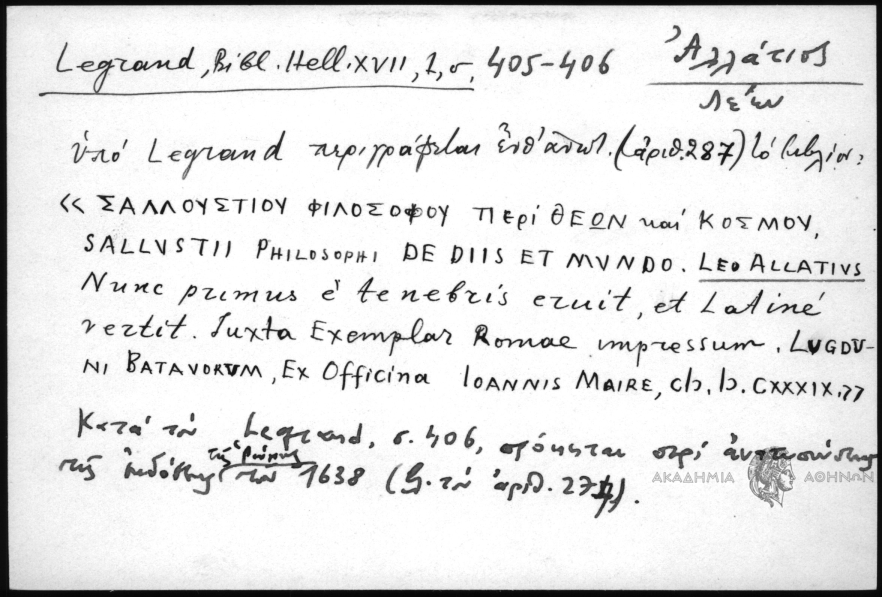 Legrand, Bibl. Hell. XVII, 1, σ. 405-406 Ἀλλάτιος
Λέων
ὑπό Legrand περιγράφεται ἐνθ' ἀνωτ. (ἀριθ. 287) τό βιβλίον:
«ΣΑΛΛΟΥΣΤΙΟΥ ΦΙΛΟΣΟΦΟΥ ΠΕΡΊ ΘΕΩΝ καί ΚΟΣΜΟΥ,
SALLVSTII PHILOSOPHI DE DIIS ET MVNDO. LEO ALLATIVS
Nunc primus è tenebris eruit, et Latinè
vertit. Juxta Exemplar Romae impressum. LUGDU-
NI BATAVORVM, Ex Officina IOANNIS MAIRE, cIɔ. Iɔ. CXXXIX.»
Κατά τόν Legrand, σ. 406, πρόκειται περί ἀνατυπώσεως
τῆς ἐκδόσεως τῆς Ρώμης τοῦ 1638 (βλ. τόν ἀριθ. 27).
ΑΚΑΔΗΜΙΑ ΑΘΗΝΩΝ